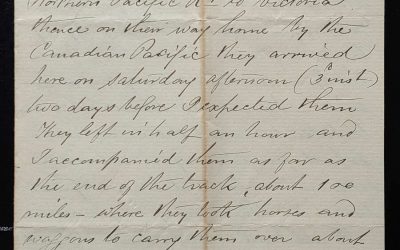 Northern Pacific Rr. to Victoria
thence on their way home by the
Canadian Pacific they arrived
here on saturday afternoon (3d inst)
two days before I expected them
They left in half an hour and
I accompanied them as far as
the end of the track, about 100
miles - where they took horses and
waggons to carry them over about